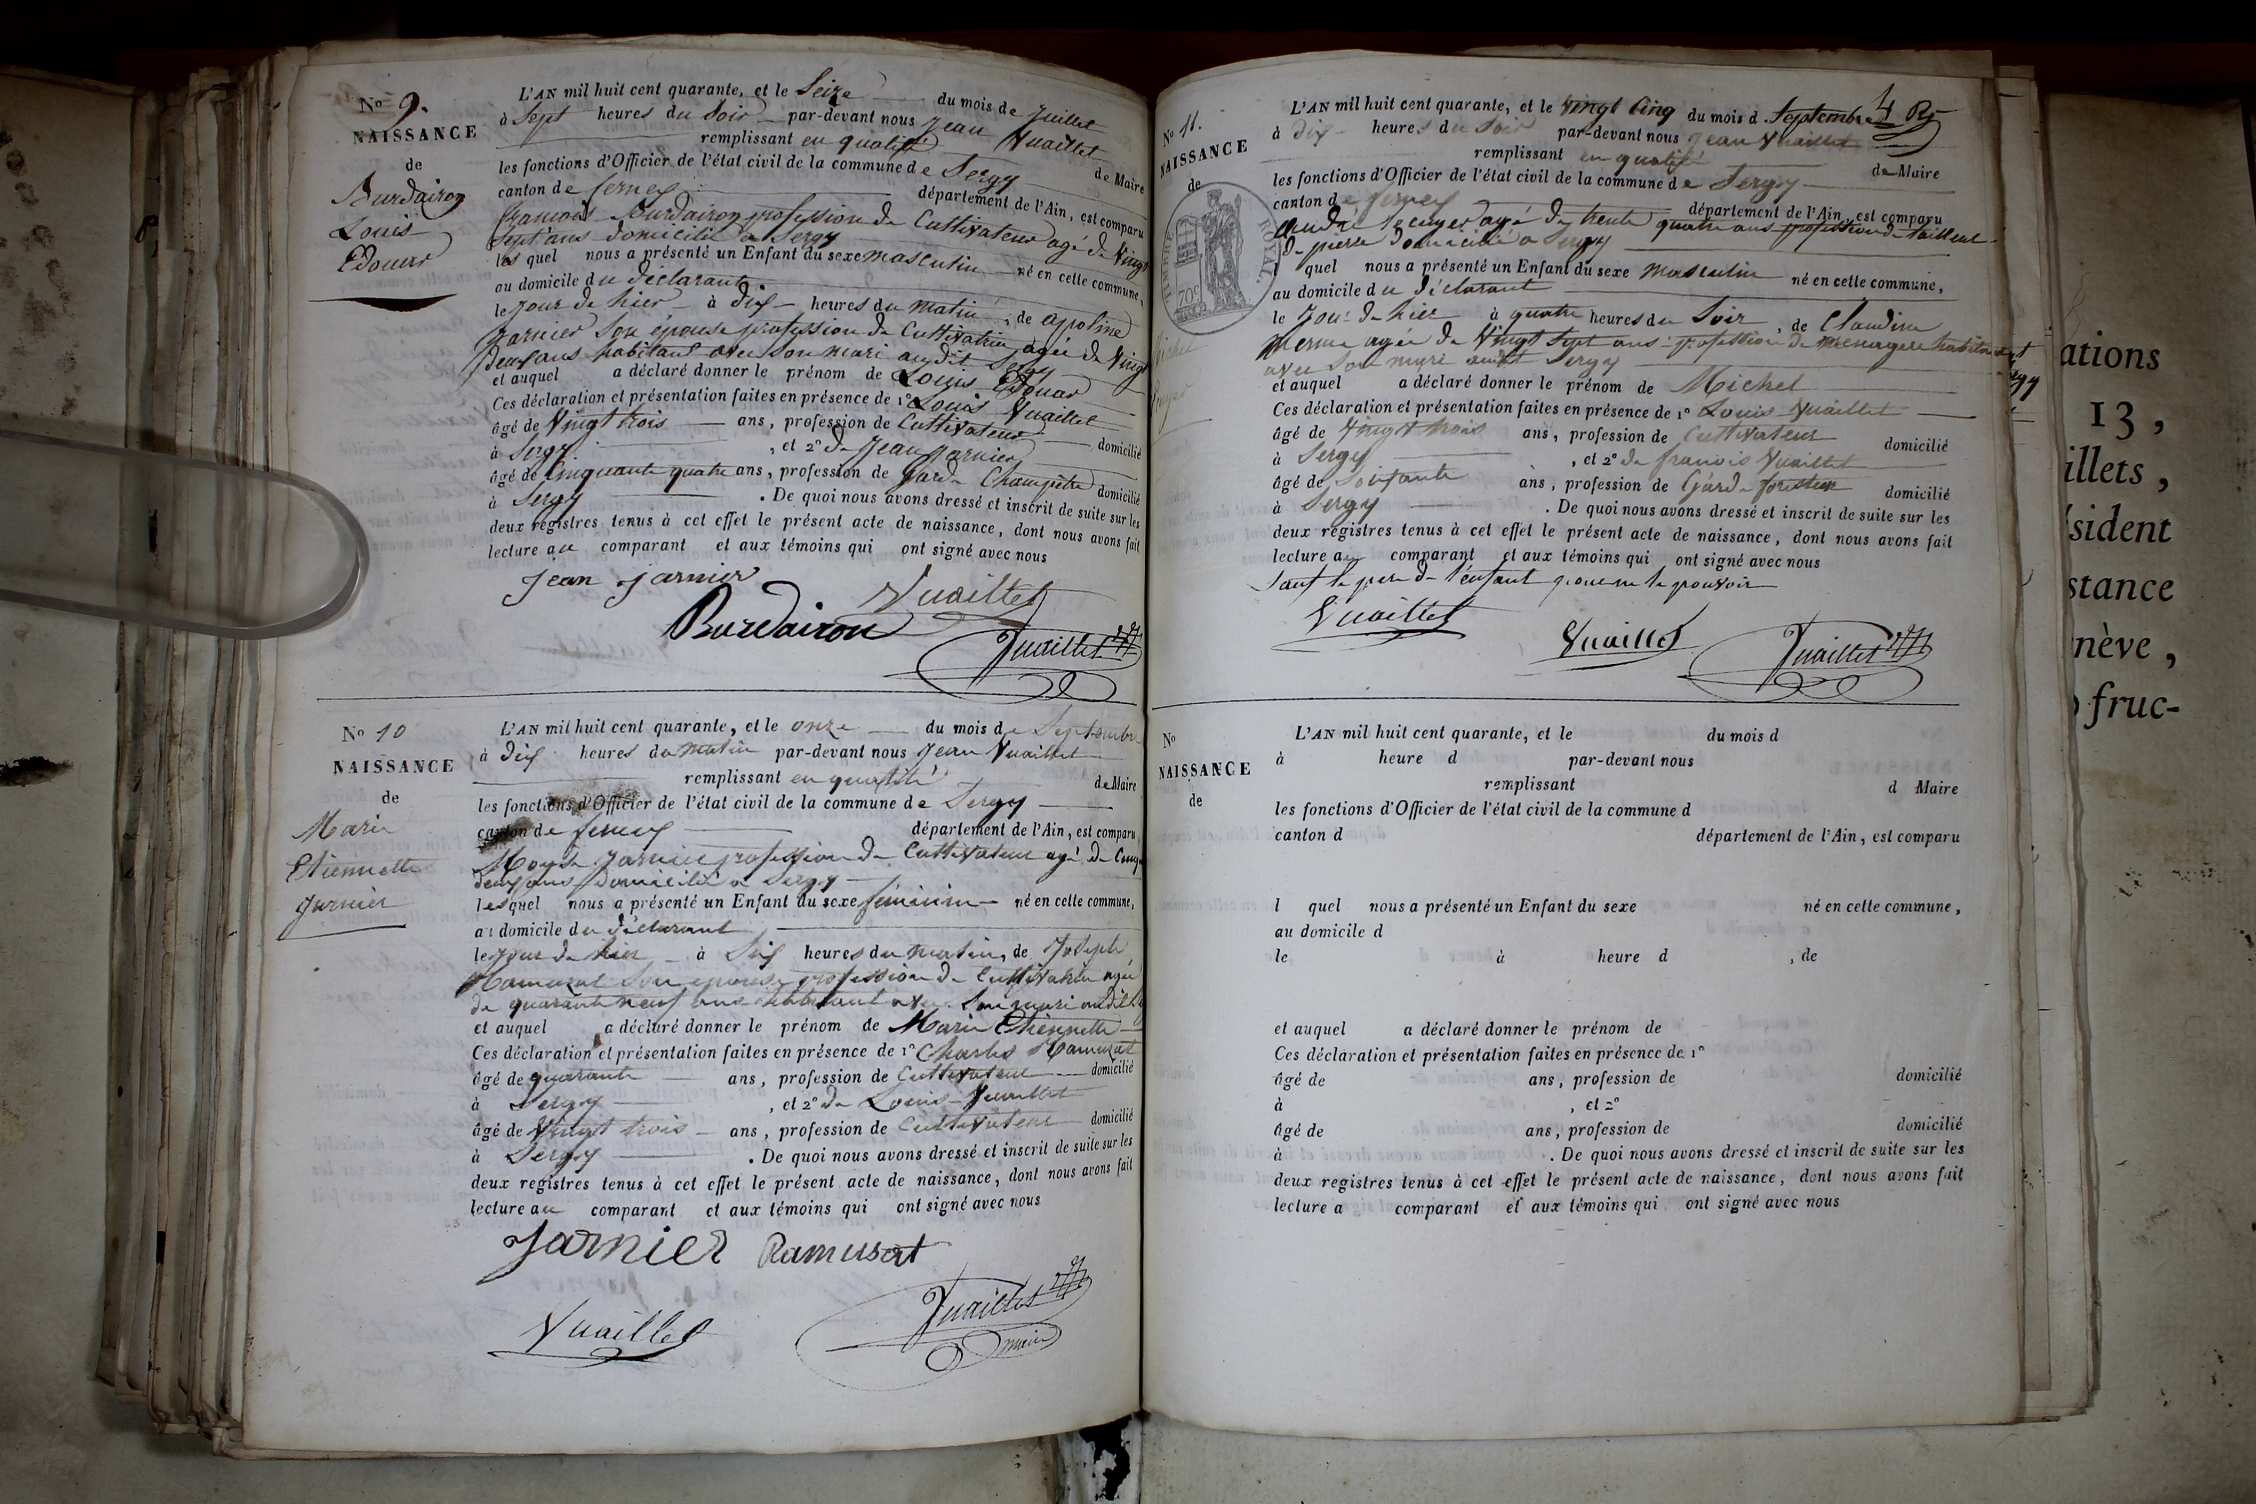 No 9.
NAISSANCE
de
Burdairon
Louis
Edouard
L'AN mil huit cent quarante, et le Seize du mois de Juillet
à Sept heures du Soir par-devant nous Jean Vuaillet
remplissant en qualité de Maire
les fonctions d'Officier de l'état civil de la commune de Sergy
canton de ferney département de l'Ain, est comparu
françois Burdairon profession de Cultivateur agé de Vingt
Sept ans domicilié a Sergy
les quel nous a présenté un Enfant du sexe masculin né en cette commune,
au domicile du déclarant
le jour de hier à dix heures du matin, de apoline
Jarnier Son épouse profession de Cultivatrice agée de Vingt
deux ans habitant avec son mari audit Sergy
et auquel a déclaré donner le prénom de Louis Edouar
Ces déclaration et présentation faites en présence de 1° Louis Vuaillet
âgé de Vingt trois ans, profession de Cultivateur domicilié
à Sergy, et 2° de Jean Jarnier
âgé de Cinquante quatre ans, profession de Garde Champêtre domicilié
à Sergy. De quoi nous avons dressé et inscrit de suite sur les
deux registres tenus à cet effet le présent acte de naissance, dont nous avons fait
lecture au comparant et aux témoins qui ont signé avec nous
jean jarnier Vuaillet
Burdairon
Vuaillet
No 10
NAISSANCE
de
Marie
Etiennette
Jarnier
L'AN mil huit cent quarante, et le onze du mois de Septembre
à dix heures du matin par-devant nous Jean Vuaillet
remplissant en qualité de Maire
les fonctions d'Officier de l'état civil de la commune de Sergy
canton de ferney département de l'Ain, est comparu
Moyse Jarnier profession de Cultivateur agé de Cinq
deux ans domicilié a Sergy
lesquel nous a présenté un Enfant du sexe féminin né en cette commune,
au domicile du déclarant
le jour de hier à Six heures du matin, de Joseph
Ramusat Son épouse profession de Cultivatrice agée
de quarante neuf ans habitant avec Son mari audit
et auquel a déclaré donner le prénom de Marie Etiennette
Ces déclaration et présentation faites en présence de 1° Charles Ramusat
âgé de quarante ans, profession de Cultivateur domicilié
à Sergy, et 2° de Louis Vuaillet
âgé de Vingt trois ans, profession de Cultivateur domicilié
à Sergy. De quoi nous avons dressé et inscrit de suite sur les
deux registres tenus à cet effet le présent acte de naissance, dont nous avons fait
lecture au comparant et aux témoins qui ont signé avec nous
Jarnier Ramusat
Vuaillet Vuaillet
maire
4
No 11.
NAISSANCE
de
TIMBRE ROYAL.
70c
Michel
L'AN mil huit cent quarante, et le Vingt Cinq du mois d Septembre
à dix heures du Soir par-devant nous Jean Vuaillet
remplissant en qualité de Maire
les fonctions d'Officier de l'état civil de la commune de Sergy
canton de ferney département de l'Ain, est comparu
André agé de trente quatre ans profession de tailleur
de pierre domicilié a Sergy
l quel nous a présenté un Enfant du sexe masculin né en cette commune,
au domicile du déclarant
le Jour de hier à quatre heures du Soir, de Claudine
agée de Vingt Sept ans profession de ménagere habitant
avec Son mari audit Sergy
et auquel a déclaré donner le prénom de Michel
Ces déclaration et présentation faites en présence de 1° Louis Vuaillet
âgé de Vingt trois ans, profession de Cultivateur domicilié
à Sergy, et 2° de françois Vuaillet
âgé de Soixante ans, profession de Garde forestier domicilié
à Sergy. De quoi nous avons dressé et inscrit de suite sur les
deux registres tenus à cet effet le présent acte de naissance, dont nous avons fait
lecture au comparant et aux témoins qui ont signé avec nous
Sauf le pere de l'enfant pour ne le pouvoir
Vuaillet Vuaillet Vuaillet
No
NAISSANCE
de
L'AN mil huit cent quarante, et le du mois d
à heure d par-devant nous
remplissant d Maire
les fonctions d'Officier de l'état civil de la commune d
canton d département de l'Ain, est comparu
l quel nous a présenté un Enfant du sexe né en cette commune,
au domicile d
le à heure d , de
et auquel a déclaré donner le prénom de
Ces déclaration et présentation faites en présence de 1°
âgé de ans, profession de domicilié
à , et 2°
âgé de ans, profession de domicilié
à . De quoi nous avons dressé et inscrit de suite sur les
deux registres tenus à cet effet le présent acte de naissance, dont nous avons fait
lecture a comparant et aux témoins qui ont signé avec nous
ations
13,
illets,
sident
stance
nève,
fruc-